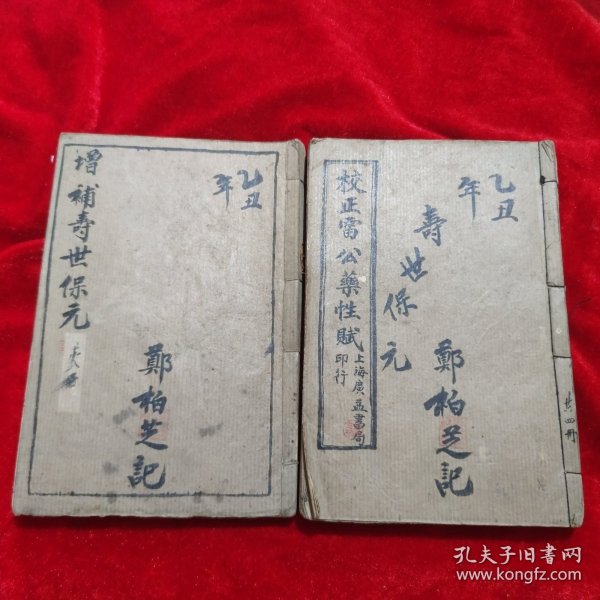 乙丑
年
增補壽世保元
鄭柏芝記
乙丑
年
壽世保元
校正雷公藥性賦
上海廣益書局
印行
鄭柏芝記
共四冊
孔夫子旧书网
www.kongfz.com